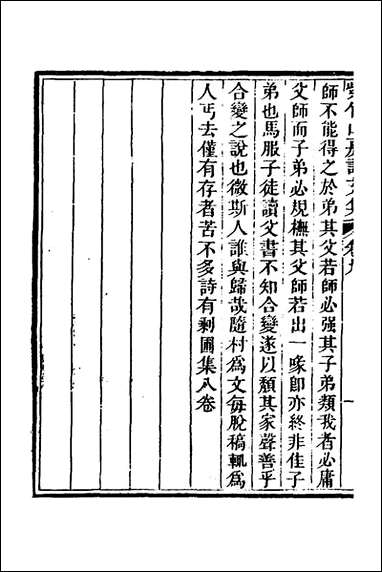 紫竹山房詩文集 卷九 一
師不能得之於弟其父若師必强其子弟類我者必庸
父師而子弟必規橅其父師若出一喙卽亦終非佳子
弟也馬服子徒讀父書不知合變遂以頹其家聲善乎
合變之說也微斯人誰與歸哉隨村爲文每脫稿輒爲
人丐去僅有存者苦不多詩有剩圃集八卷